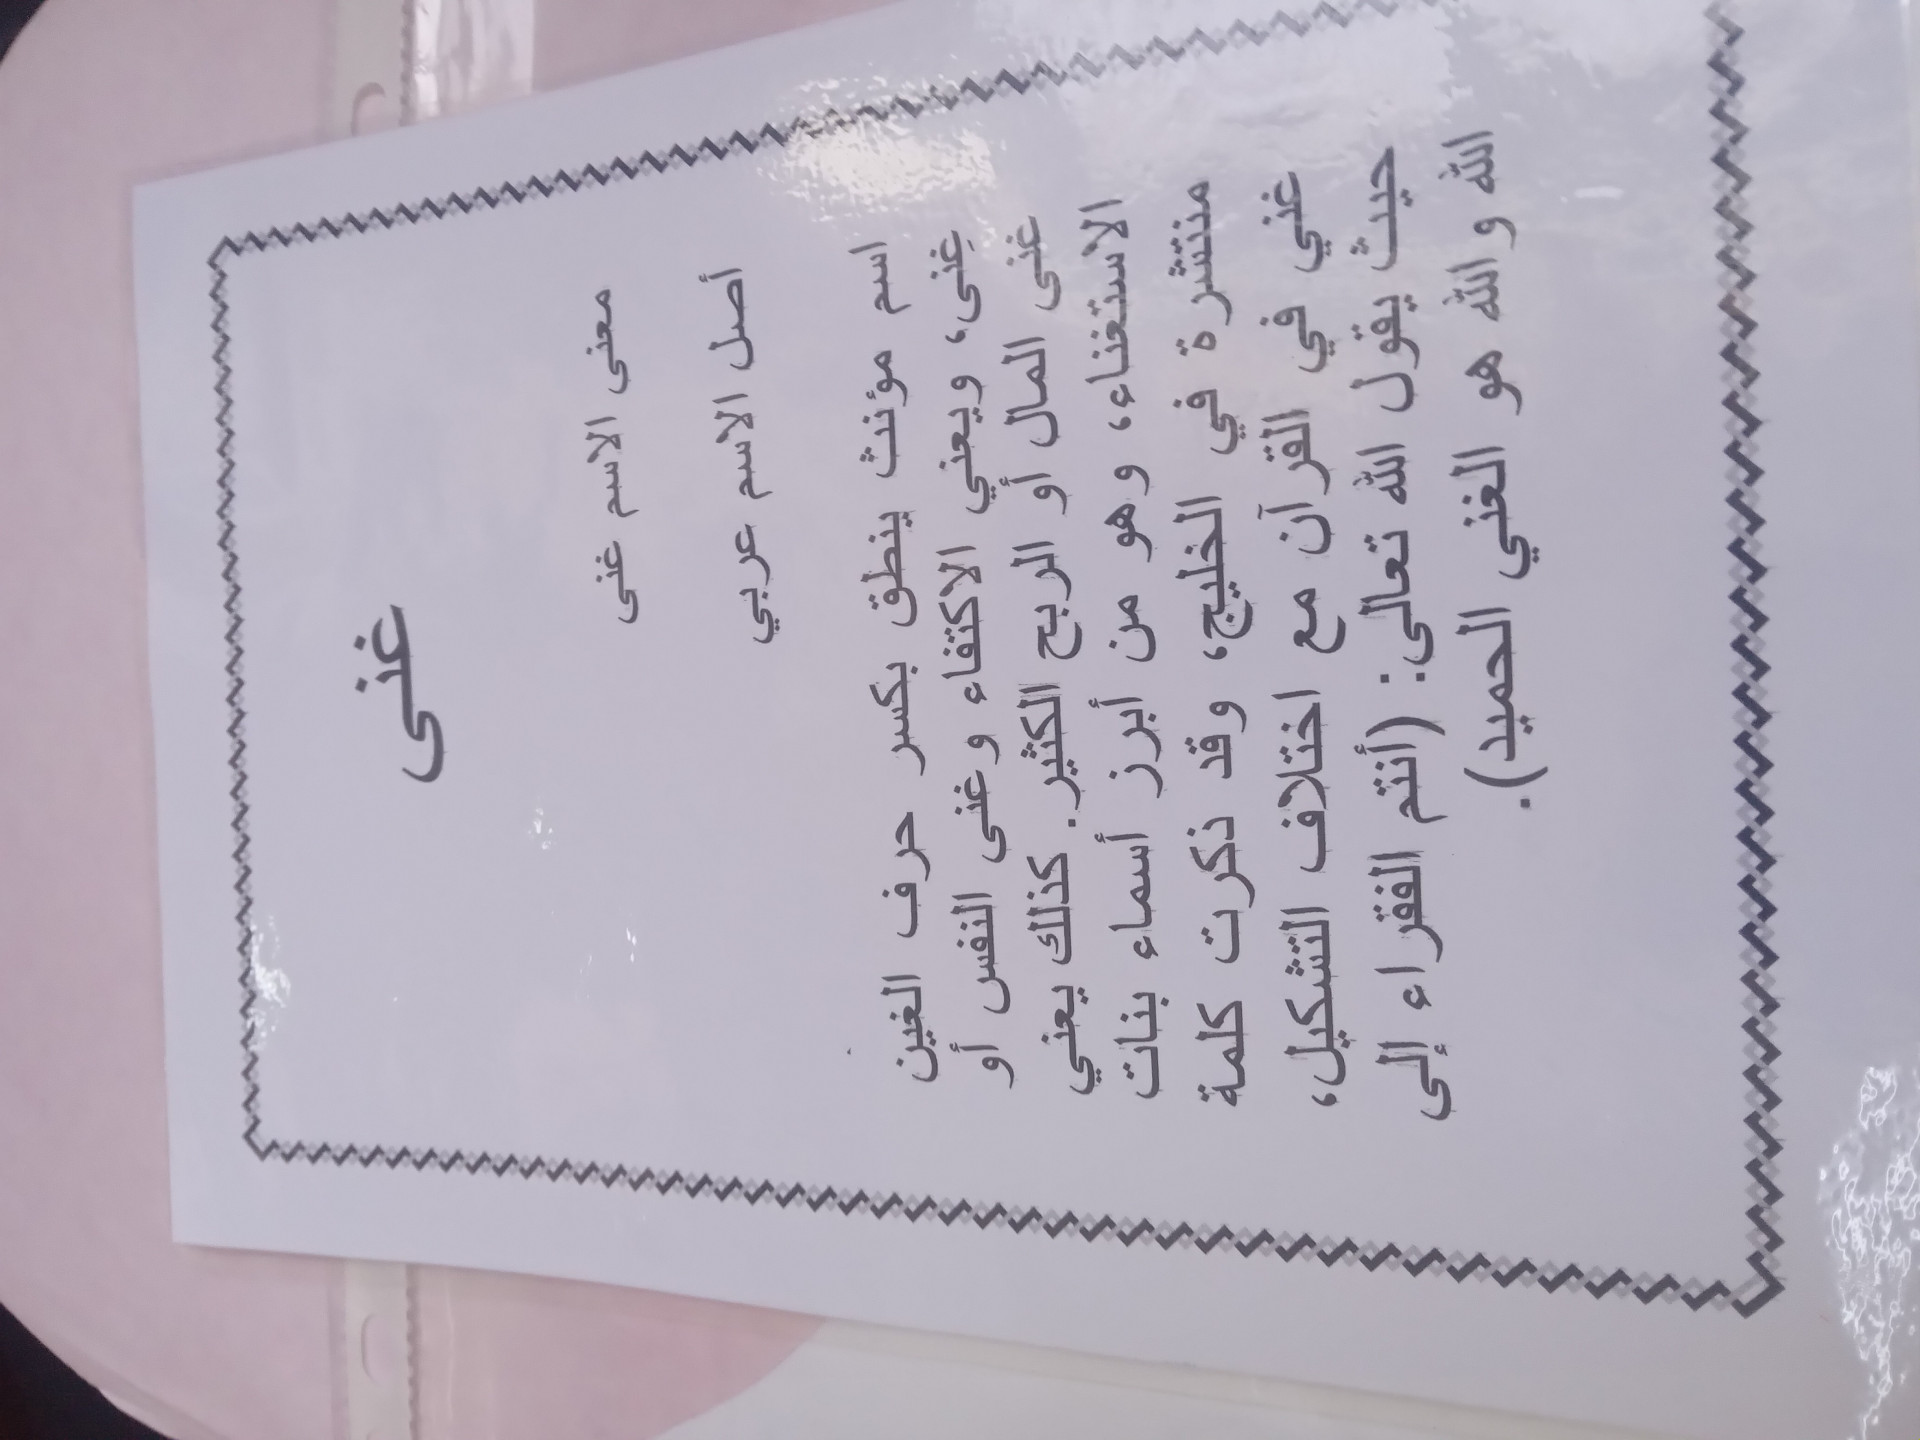 غنى
معنى الاسم غنى
أصل الاسم عربي
اسم مؤنث ينطق بكسر حرف الغين
غِنى، ويعني الاكتفاء وغنى النفس أو
غنى المال أو الربح الكثير. كذلك يعني
الاستغناء، وهو من أبرز أسماء بنات
منتشرة في الخليج، وقد ذكرت كلمة
غني في القرآن مع اختلاف التشكيل،
حيث يقول الله تعالى: (أنتم الفقراء إلى
الله والله هو الغني الحميد).